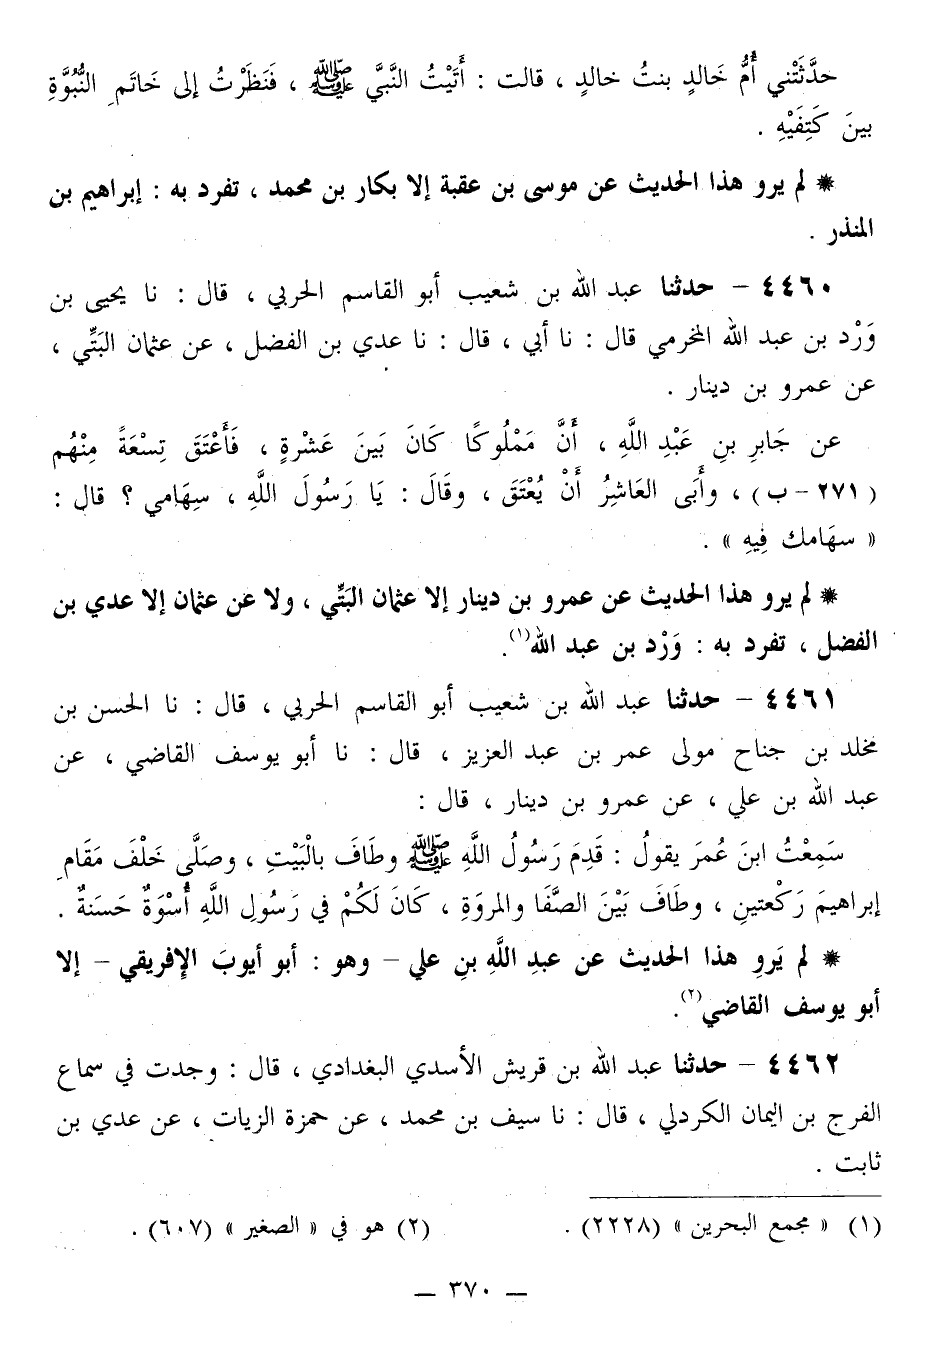 حدَّثَتْني أُمُّ خَالدٍ بنتُ خالدٍ ، قالت : أَتَيْتُ النَّبيَّ ﷺ ، فَنَظَرْتُ إلى خَاتَمِ النُّبُوَّةِ
بينَ كَتِفَيْهِ .
* لم يرو هذا الحديث عن موسى بن عقبة إلا بكار بن محمد ، تفرد به : إبراهيم بن
المنذر .
٤٤٦٠ – حدثنا عبد الله بن شعيب أبو القاسم الحربي ، قال : نا يحيى بن
وَرْد بن عبد الله المخرمي قال : نا أبي ، قال : نا عدي بن الفضل ، عن عثمان البَتِّي ،
عن عمرو بن دينار .
عن جَابرِ بنِ عَبْدِ اللَّهِ ، أَنَّ مَمْلُوكًا كَانَ بَينَ عَشْرةٍ ، فَأَعْتَقَ تِسْعَةً مِنْهُم
(٢٧١ – ب) ، وأَبَى العَاشِرُ أَنْ يُعْتَقَ ، وقَالَ : يَا رَسُولَ اللَّهِ ، سِهَامي ؟ قال :
« سهَامك فِيهِ » .
* لم يرو هذا الحديث عن عمرو بن دينار إلا عثمان البَتِّي ، ولا عن عثمان إلا عدي بن
الفضل ، تفرد به : وَرْد بن عبد الله(١).
٤٤٦١ – حدثنا عبد الله بن شعيب أبو القاسم الحربي ، قال : نا الحسن بن
مخلد بن جناح مولى عمر بن عبد العزيز ، قال : نا أبو يوسف القاضي ، عن
عبد الله بن علي ، عن عمرو بن دينار ، قال :
سَمِعْتُ ابنَ عُمرَ يقولُ : قَدِمَ رَسُولُ اللَّهِ ﷺ وطَافَ بالْبَيْتِ ، وصَلَّى خَلْفَ مَقَامِ
إبراهيمَ رَكْعتينِ ، وطَافَ بَيْنَ الصَّفَا والمروَةِ ، كَانَ لَكُمْ في رَسُولِ اللَّهِ أُسْوَةٌ حَسَنةٌ .
* لم يَروِ هذا الحديث عن عبدِ اللَّهِ بنِ علي – وهو : أبو أيوبَ الإفريقي – إلا
أبو يوسف القاضي(٢).
٤٤٦٢ – حدثنا عبد الله بن قريش الأسدي البغدادي ، قال : وجدت في سماع
الفرج بن اليمان الكردلي ، قال : نا سيف بن محمد ، عن حمزة الزيات ، عن عدي بن
ثابت .
(١) « مجمع البحرين » (٢٢٢٨) . (٢) هو في « الصغير » (٦٠٧) .
— ٣٧٠ —